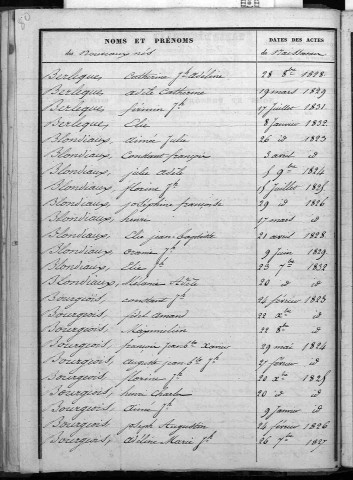 NOMS ET PRÉNOMS
DATES DES ACTES
des Nouveaux nés
de Naissance
Berlegues, Catherine Jh. Adeline 28 8bre 1828
Berlegues Adèle Catherine 19 mars 1829
Berlegues firmin Jh 17 Juillet 1831
Berlegues Elie 8 Janvier 1832
Blondiaux, aimée Julie 26 id 1823
Blondiaux, Constant françois 3 avril id
Blondiaux, julie adèle 5 9bre 1824
Blondiaux florine Jh 15 Juillet 1825
Blondiaux, joséphine françoise 29 id 1826
Blondiaux, henri 17 mars id
Blondiaux, Elie jean baptiste 21 avril 1828
Blondiaux, Jh 9 Juin 1829
Blondiaux, Elie Jh 23 7bre 1832
Blondiaux, Mélanie 20 id id
Bourgeois, constant Jh 24 février 1823
Bourgeois, amand 22 xbre id
Bourgeois, Maximilien 22 8bre id
Bourgeois, françois Jean bte Xavier 29 mai 1824
Bourgeois, auguste jean bte Jh 27 février id
Bourgeois, florine Jh 20 xbre 1825
Bourgeois, henri Charles 20 id id
Bourgeois, Jh 9 Janvier id
Bourgeois joseph Augustin 24 février 1826
Bourgeois, adéline Marie Jh 26 7bre 1827